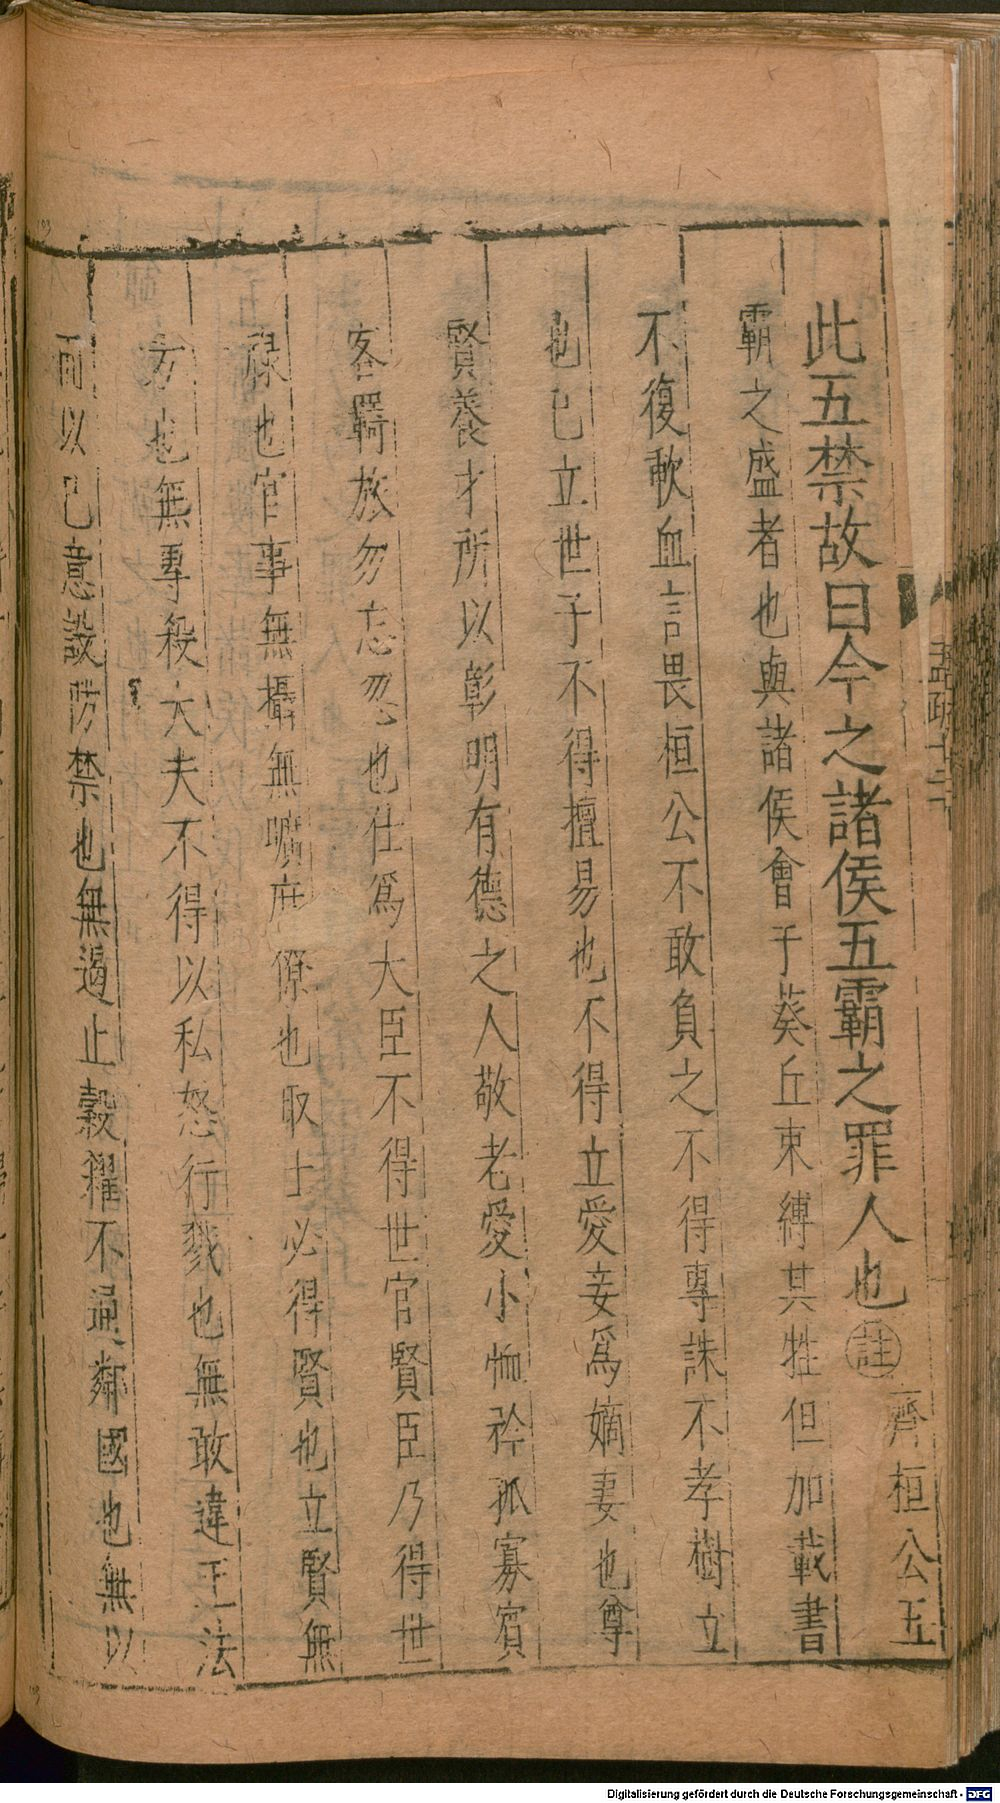 此五禁故曰今之諸侯五霸之罪人也註齊桓公五
霸之盛者也與諸侯會于葵丘束縛其牲但加載書
不復歃血言畏桓公不敢負之不得專誅不孝樹立
也已立世子不得擅易也不得立愛妾爲嫡妻也尊
賢養才所以彰明有德之人敬老愛小恤矜孤寡賓
客羇旅勿忘忽也仕爲大臣不得世官賢臣乃得世
祿也官事無攝無曠庶僚也取士必得賢也立賢無
方也無專殺大夫不得以私怒行戮也無敢違王法
而以己意設防禁也無遏止穀糴不通鄰國也無以
孟疏十二下
Digitalisierung gefördert durch die Deutsche Forschungsgemeinschaft - DFG